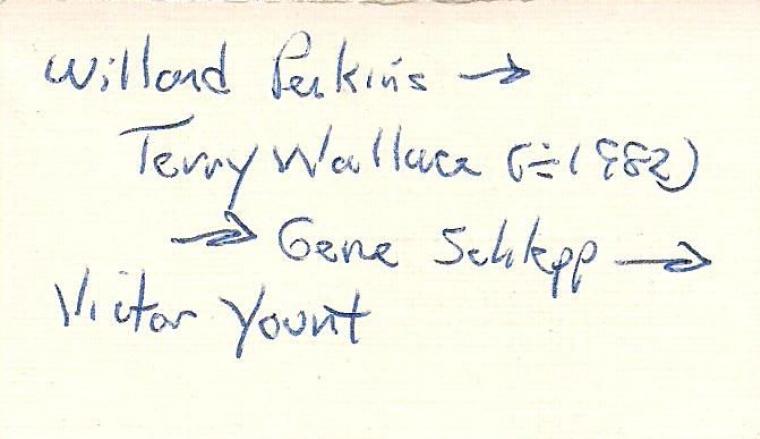 Willard Perkins →
Terry Wallace (÷1982)
→ Gene Schlepp →
Victor Yount